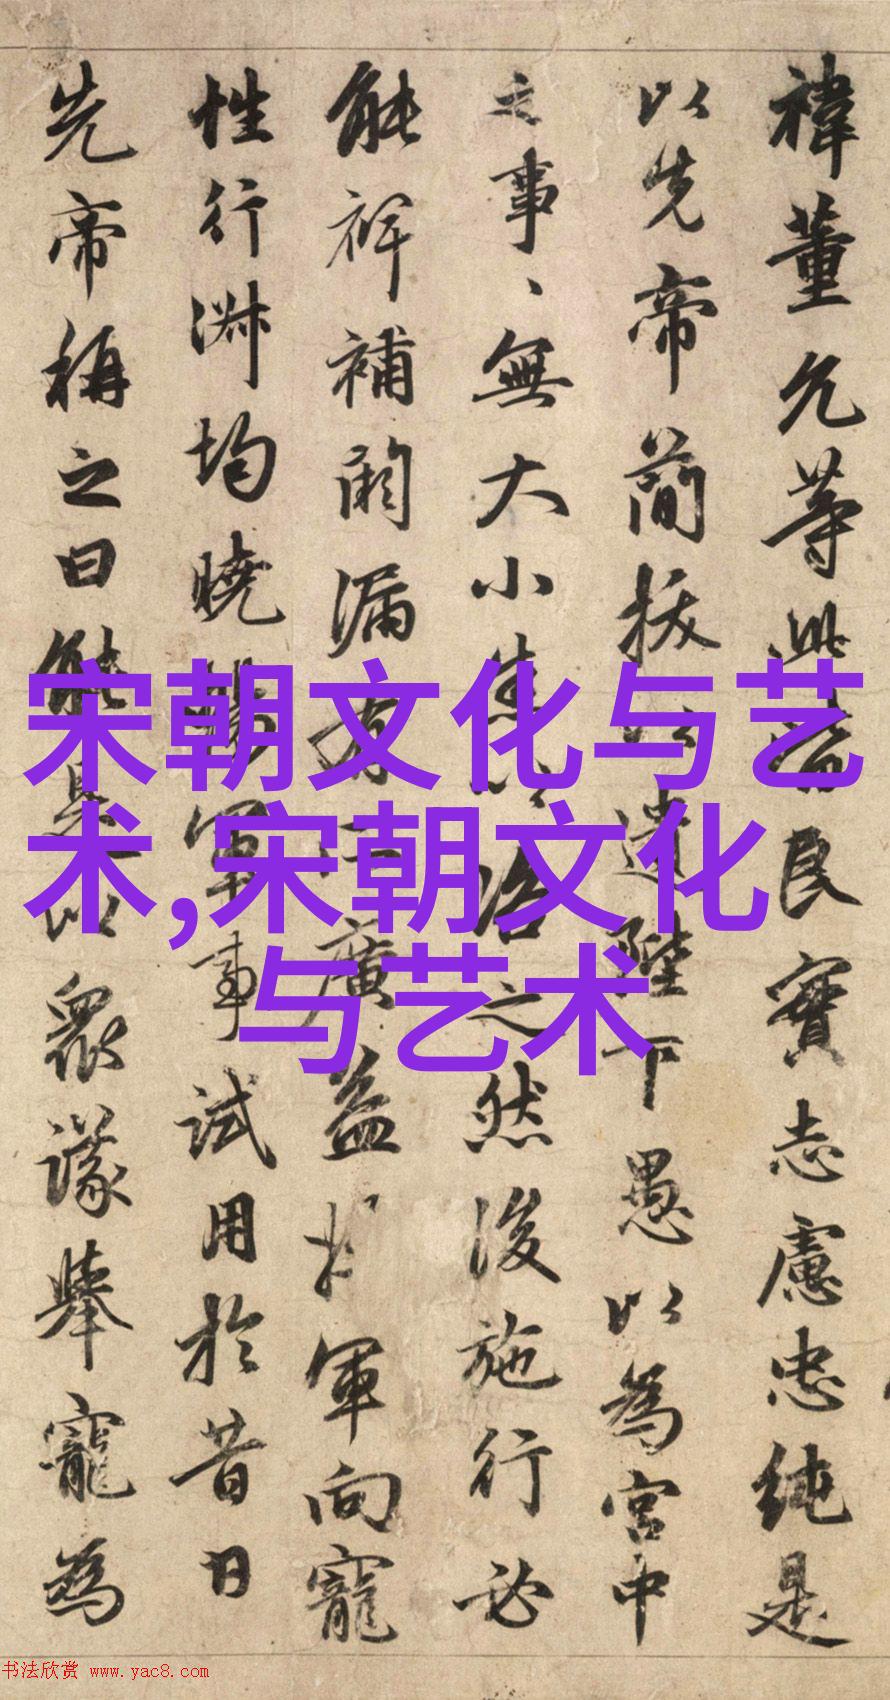 禕董允等此皆良實志慮忠純是
以先帝簡拔以遺陛下愚以為宮中
之事、無大小悉以咨之然後施行必
能裨補闕漏有所廣益將軍向寵
性行淑均曉暢軍事試用於昔日
先帝稱之曰能是以眾議舉寵為
宋朝文化与艺
术,宋朝文化
与艺术
书法欣赏 www.yac8.com